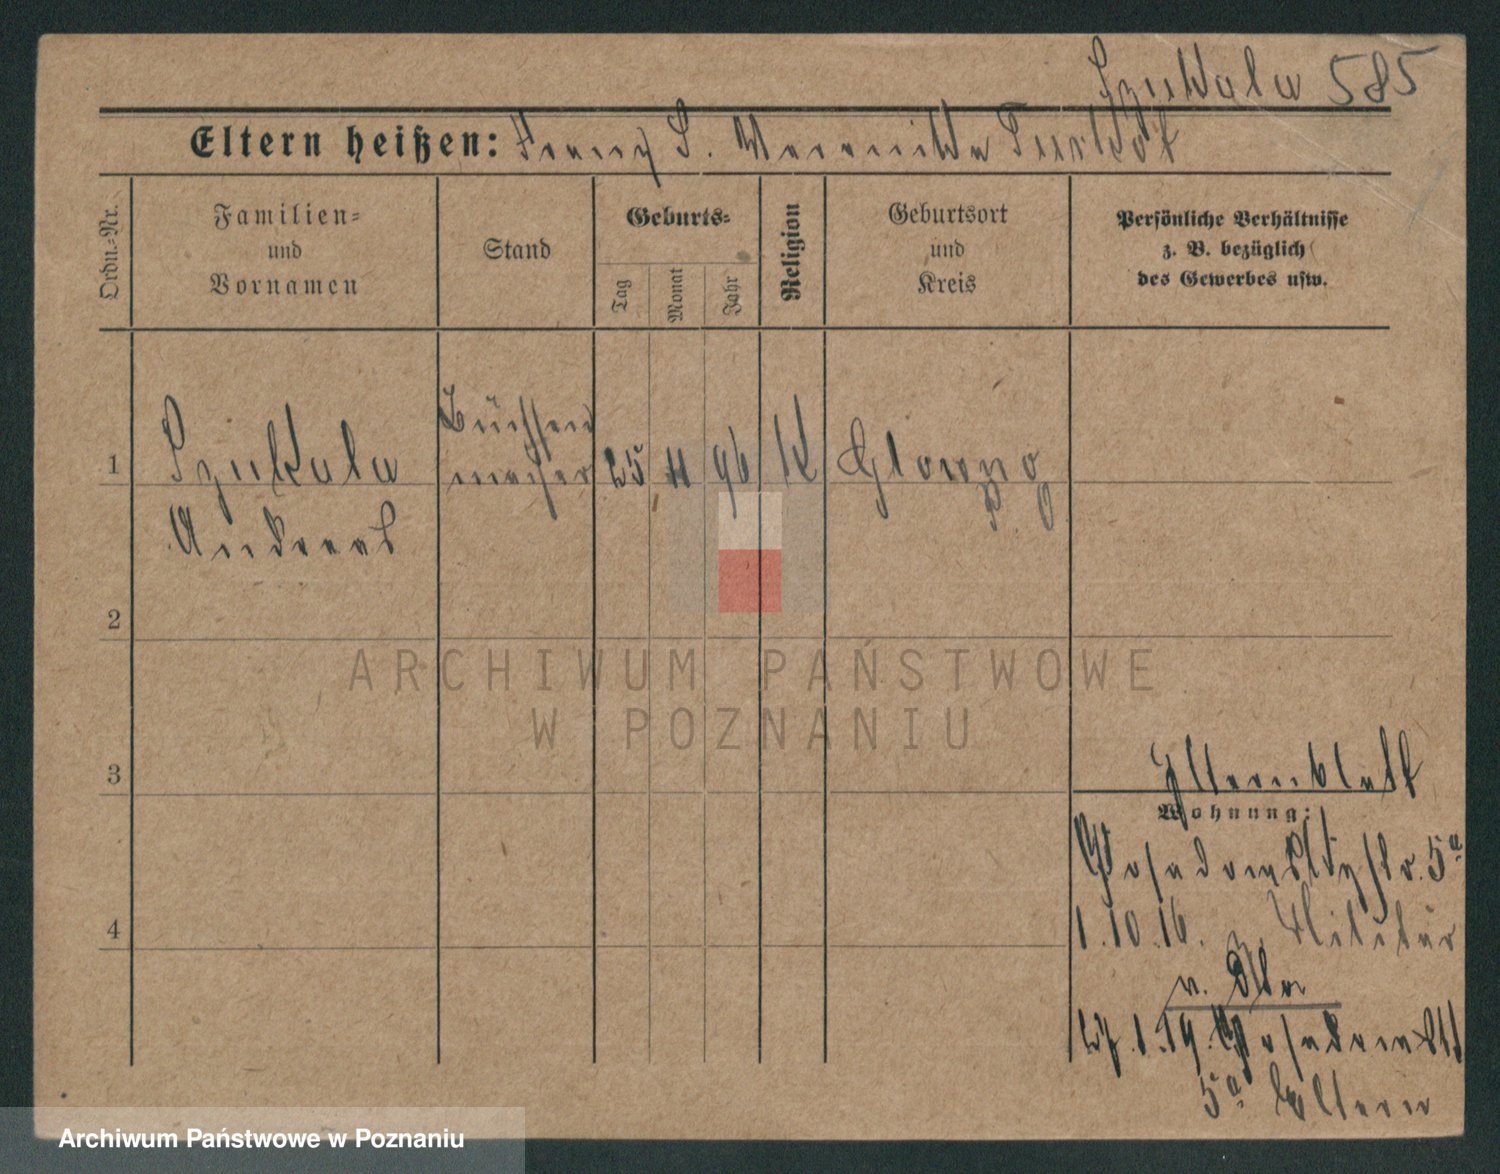 Szukala 585
Eltern heißen: Franz S. Veronika Turkot
Ordn.-Nr.
Familien-
und
Vornamen
Stand
Geburts-
Tag
Monat
Jahr
Religion
Geburtsort
und
Kreis
Persönliche Verhältnisse
z. B. bezüglich
des Gewerbes usw.
1
Szukala
Andreas
Büchsen
macher
25 11 96 K
Glowno
P. O.
2
3
4
Elternblatt
Wohnung:
5a
1.10.16. z. Militär
v. Abr
27.1.19.
5a Eltern
ARCHIWUM PAŃSTWOWE
W POZNANIU
Archiwum Państwowe w Poznaniu